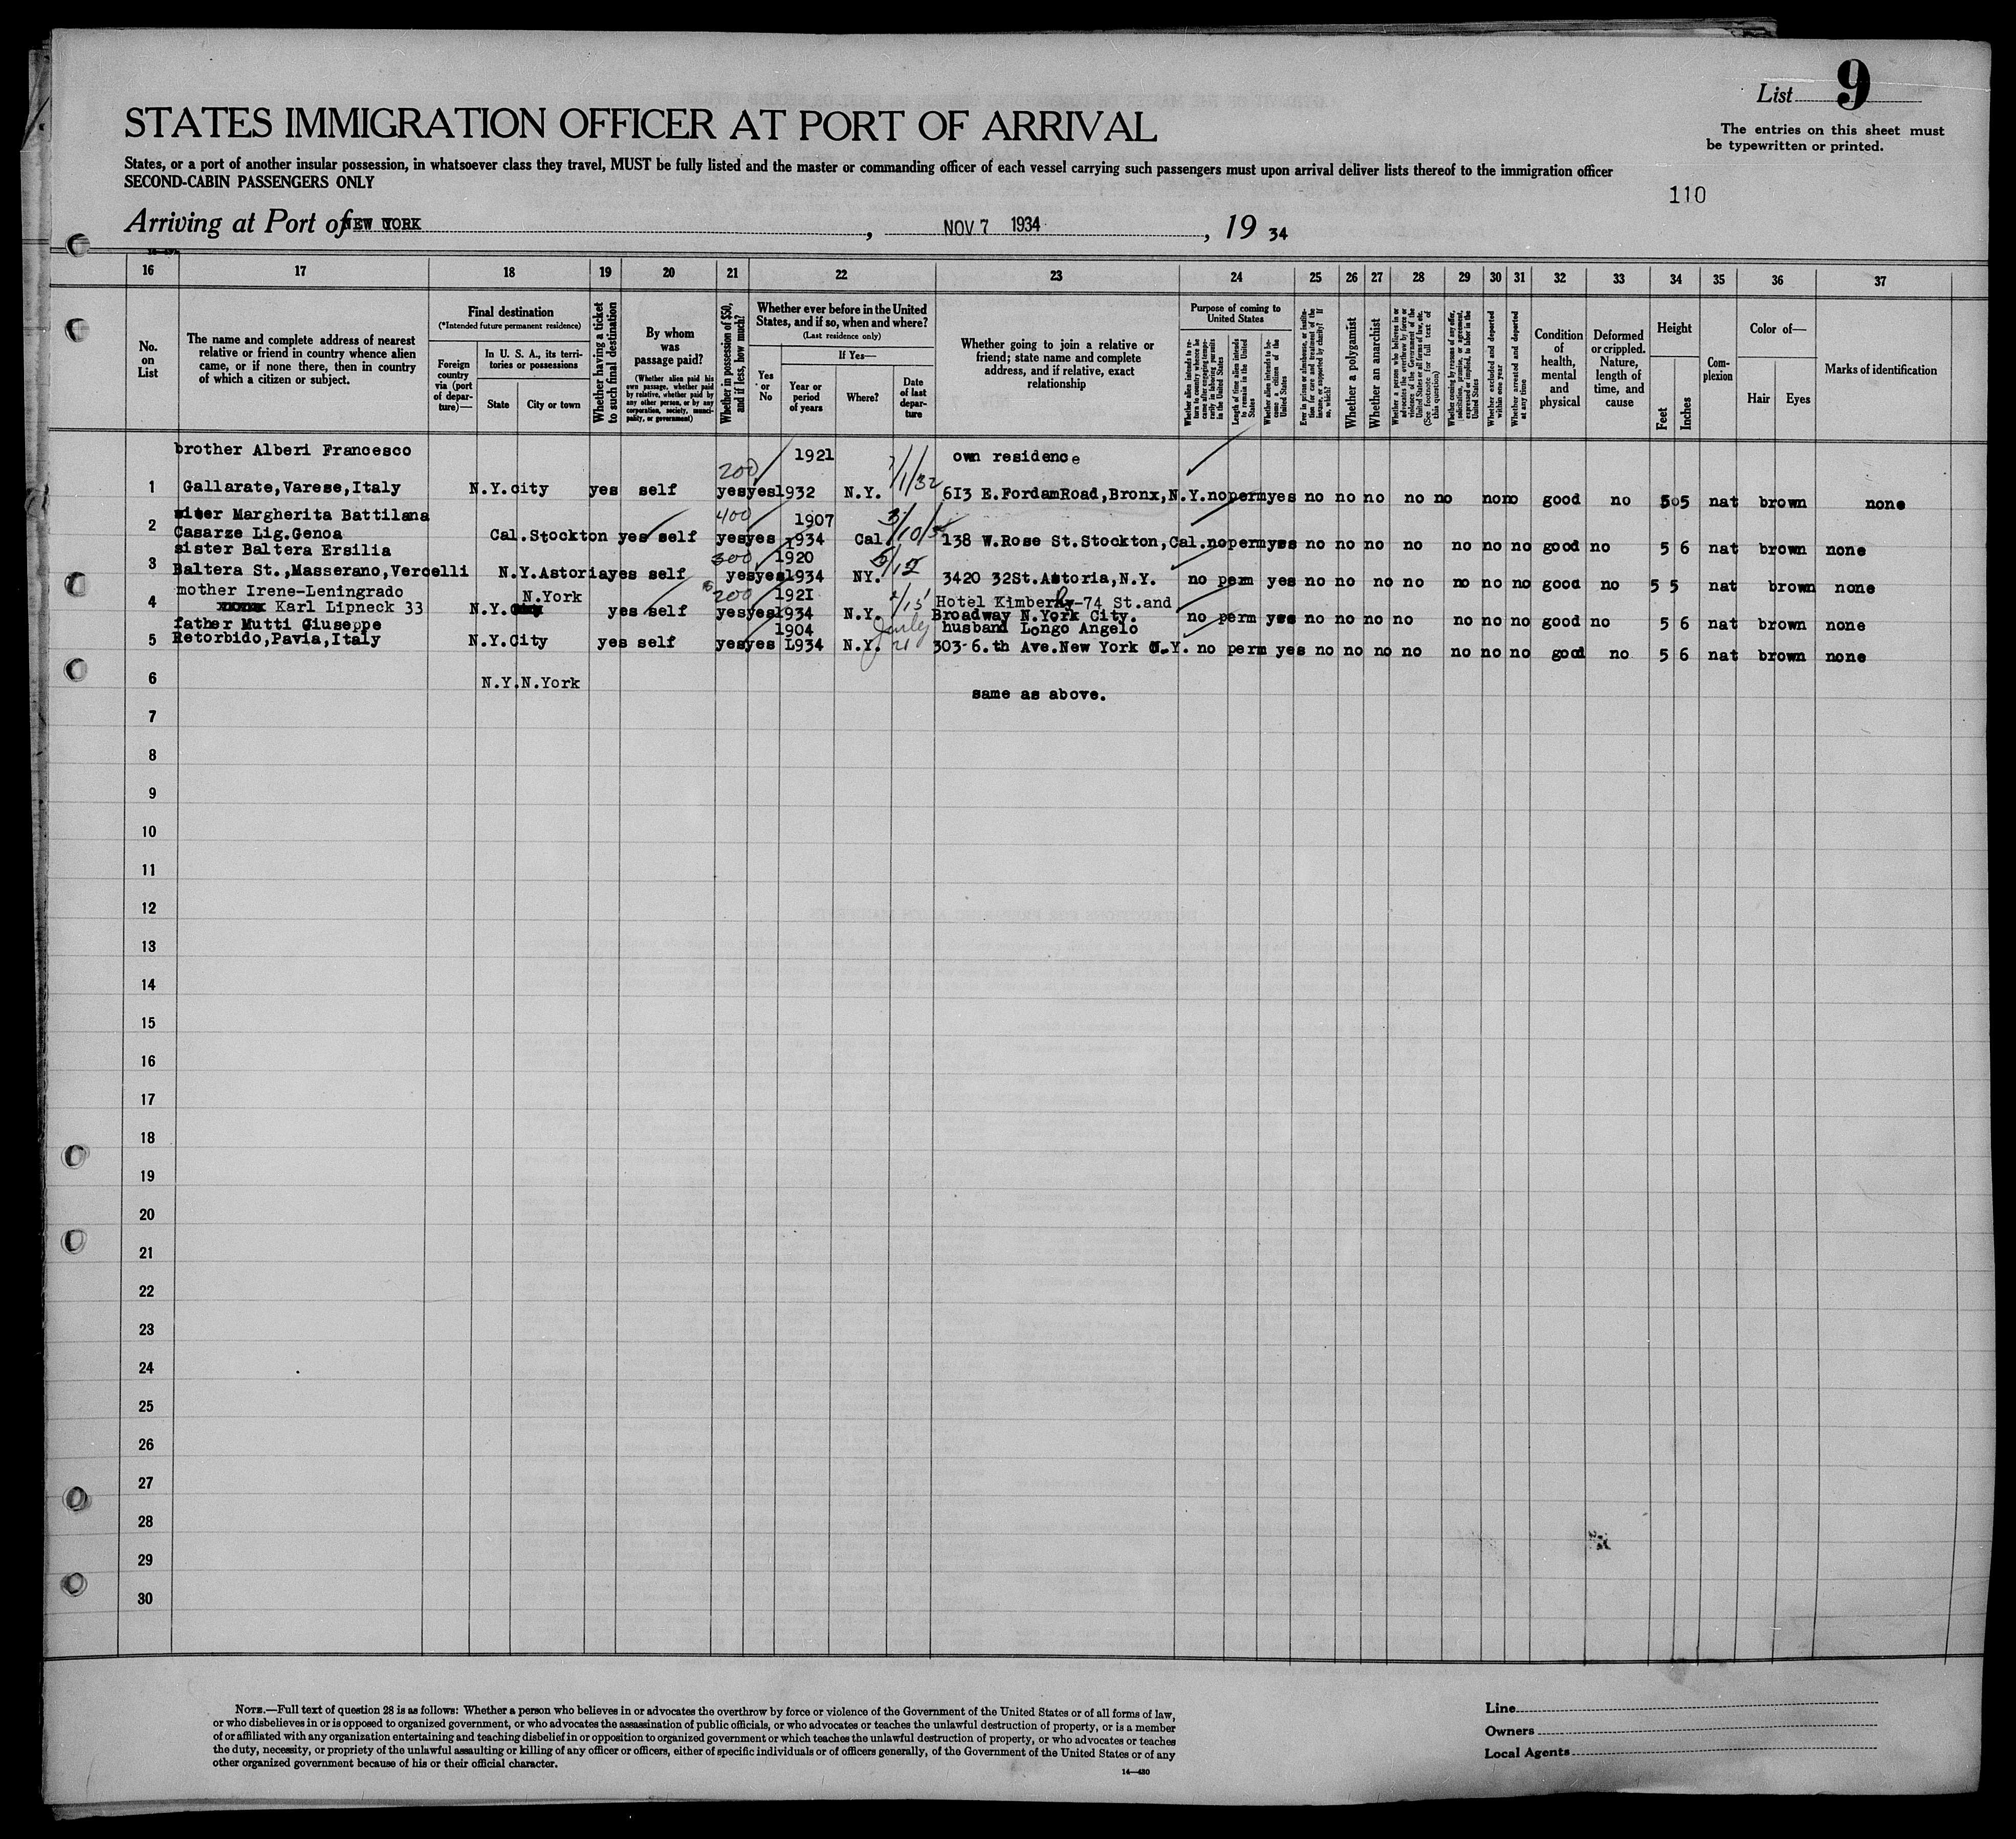 List 9
STATES IMMIGRATION OFFICER AT PORT OF ARRIVAL
The entries on this sheet must
be typewritten or printed.
States, or a port of another insular possession, in whatsoever class they travel, MUST be fully listed and the master or commanding officer of each vessel carrying such passengers must upon arrival deliver lists thereof to the immigration officer
SECOND-CABIN PASSENGERS ONLY
110
Arriving at Port of NEW YORK, NOV 7 1934, 19 34
16 17 18 19 20 21 22 23 24 25 26 27 28 29 30 31 32 33 34 35 36 37
No. on List
The name and complete address of nearest
relative or friend in country whence alien
came, or if none there, then in country
of which a citizen or subject.
Final destination
(*Intended future permanent residence)
Foreign country via (port of departure)—
In U. S. A., its territories or possessions
State
City or town
Whether having a ticket to such final destination
By whom was passage paid?
(Whether alien paid his own passage, whether paid by relative, whether paid by any other person, or by any corporation, society, municipality, or government)
Whether in possession of $50, and if less, how much?
Whether ever before in the United States, and if so, when and where?
(Last residence only)
Yes or No
If Yes—
Year or period of years
Where?
Date of last departure
Whether going to join a relative or
friend; state name and complete
address, and if relative, exact
relationship
Purpose of coming to United States
Whether alien intends to return to country whence he came after engaging temporarily in laboring pursuits in the United States
Length of time alien intends to remain in the United States
Whether alien intends to become a citizen of the United States
Ever in prison or almshouse, or institution for care and treatment of the insane, or supported by charity? If so, which?
Whether a polygamist
Whether an anarchist
Whether a person who believes in or advocates the overthrow by force or violence of the Government of the United States or all forms of law, etc. (See footnote for full text of this question)
Whether coming by reasons of any offer, solicitation, promise, or agreement, expressed or implied, to labor in the United States
Whether excluded and deported within one year
Whether arrested and deported at any time
Condition of health, mental and physical
Deformed or crippled. Nature, length of time, and cause
Height
Feet
Inches
Complexion
Color of—
Hair
Eyes
Marks of identification
brother Alberi Francesco 200 1921 7/1/32 own residence
1 Gallarate,Varese,Italy N.Y.city yes self yes yes 1932 N.Y. 613 E.FordamRoad,Bronx,N.Y. no perm yes no no no no no no no good no 5 5 nat brown none
Margherita Battilana 400 1907
2 Casarze Lig.Genoa Cal.Stockton yes self yes yes 1934 Cal. 138 W.Rose St.Stockton,Cal. no perm yes no no no no no no no good no 5 6 nat brown none
sister Baltera Ersilia 300 1920 5/12
3 Baltera St.,Masserano,Vercelli N.Y.Astoria yes self yes yes 1934 NY. 3420 32St.Astoria,N.Y. no perm yes no no no no no no no good no 5 5 nat brown none
mother Irene-Leningrado N.York 200 1921 Hotel Kimberly-74 St.and
4 Karl Lipneck 33 N.Y. yes self yes yes 1934 N.Y. Broadway N.York City. no perm yes no no no no no no no good no 5 6 nat brown none
father Mutti Giuseppe 1904 July husband Longo Angelo
5 Retorbido,Pavia,Italy N.Y.City yes self yes yes 1934 N.Y. 21 303-6.th Ave.New York N.Y. no perm yes no no no no no no no good no 5 6 nat brown none
6 N.Y.N.York same as above.
7
8
9
10
11
12
13
14
15
16
17
18
19
20
21
22
23
24
25
26
27
28
29
30
NOTE.—Full text of question 28 is as follows: Whether a person who believes in or advocates the overthrow by force or violence of the Government of the United States or of all forms of law,
or who disbelieves in or is opposed to organized government, or who advocates the assassination of public officials, or who advocates or teaches the unlawful destruction of property, or is a member
of or affiliated with any organization entertaining and teaching disbelief in or opposition to organized government or which teaches the unlawful destruction of property, or who advocates or teaches
the duty, necessity, or propriety of the unlawful assaulting or killing of any officer or officers, either of specific individuals or of officers generally, of the Government of the United States or of any
other organized government because of his or their official character.
14—430
Line
Owners
Local Agents